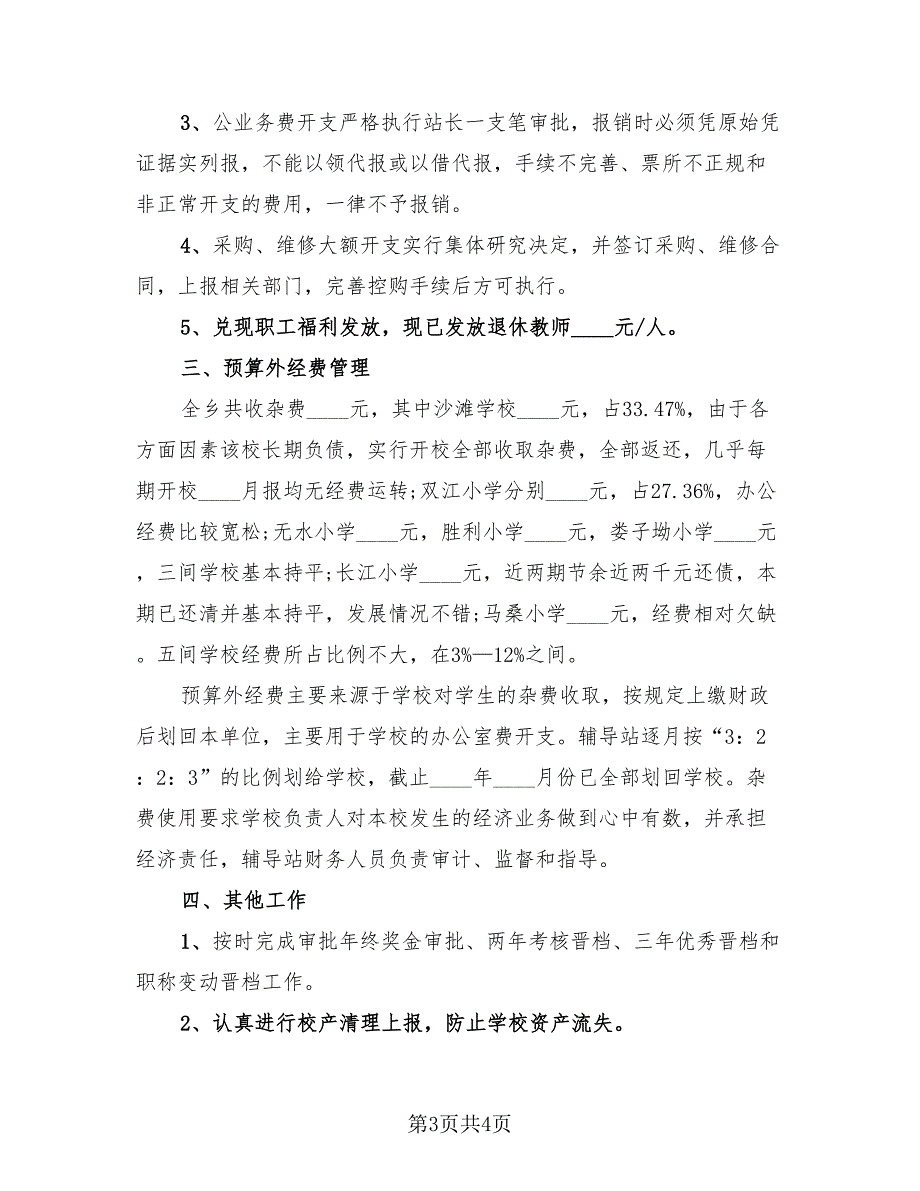 3、公业务费开支严格执行站长一支笔审批，报销时必须凭原始凭
证据实列报，不能以领代报或以借代报，手续不完善、票所不正规和
非正常开支的费用，一律不予报销。
4、采购、维修大额开支实行集体研究决定，并签订采购、维修合
同，上报相关部门，完善控购手续后方可执行。
5、兑现职工福利发放，现已发放退休教师____元/人。
三、预算外经费管理
全乡共收杂费____元，其中沙滩学校____元，占33.47%，由于各
方面因素该校长期负债，实行开校全部收取杂费，全部返还，几乎每
期开校____月报均无经费运转;双江小学分别____元，占27.36%，办公
经费比较宽松;无水小学____元，胜利小学____元，娄子坳小学____元
，三间学校基本持平;长江小学____元，近两期节余近两千元还债，本
期已还清并基本持平，发展情况不错;马桑小学____元，经费相对欠缺
。五间学校经费所占比例不大，在3%—12%之间。
预算外经费主要来源于学校对学生的杂费收取，按规定上缴财政
后划回本单位，主要用于学校的办公室费开支。辅导站逐月按“3：2
：2：3”的比例划给学校，截止____年____月份已全部划回学校。杂
费使用要求学校负责人对本校发生的经济业务做到心中有数，并承担
经济责任，辅导站财务人员负责审计、监督和指导。
四、其他工作
1、按时完成审批年终奖金审批、两年考核晋档、三年优秀晋档和
职称变动晋档工作。
2、认真进行校产清理上报，防止学校资产流失。
第3页共4页